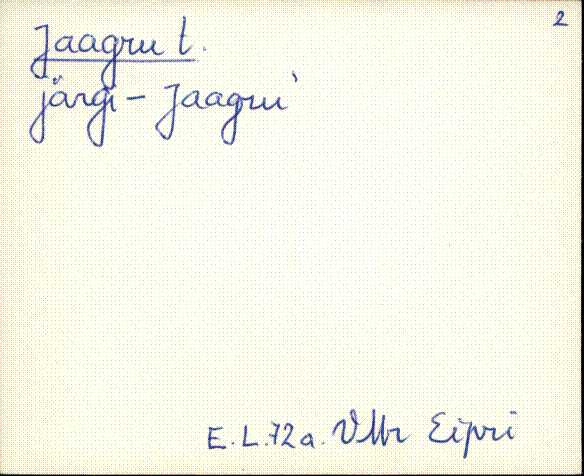 2
Jaagru t.
järgi - Jaagru`
E. L. 72a. VMr Eipri